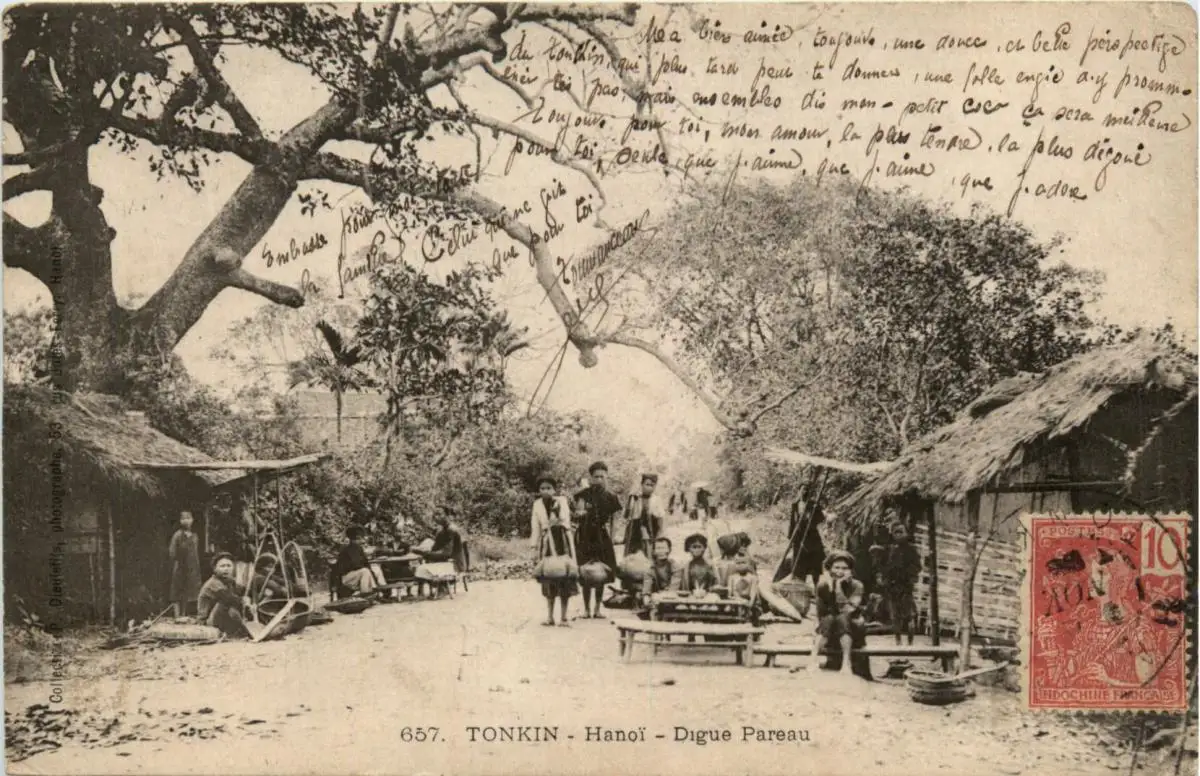 Ma bien aimée, toujours, une douce, et belle pérspectige
du tonkin, qui plus tard peut te donner, une folle engie d'y promm-
ener toi pas, mais ensembles dis mon petit coco ça sera meilleure
Toujours pour toi, mon amour, la plus tendre, la plus dégoué
pour toi, seule, que j'aime, que j'aime, que j'adore
Embasse pour moi toute
la famille
Celui qui ne git
que pour toi
657. TONKIN - Hanoï - Digue Pareau
Collection P. Dieulefils, photographe, 53, Hanoï
POSTES
10
INDOCHINE FRANÇAISE
NOV